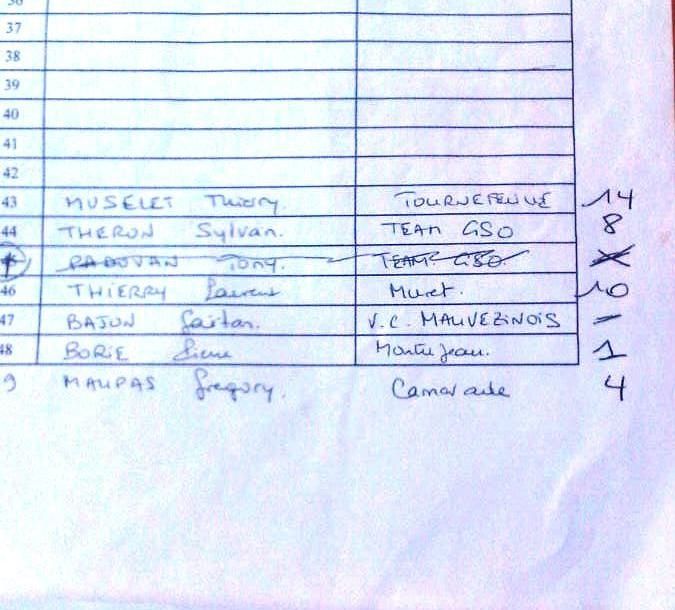 37
38
39
40
41
42
43 MUSELET Thierry. TOURNEFEUILLE 14
44 THERON Sylvain. TEAM GSO 8
PADOVAN Tony. TEAM GSO.
46 THIERRY Laurent Muret. 10
47 BAJON Gaëtan. V.C. MAUVEZINOIS -
48 BORIE Pierre Montrejeau. 1
9 MAUPAS Gregory. Camarade 4